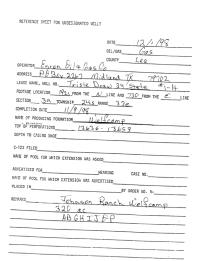 REFERENCE SHEET FOR UNDESIGNATED WELLS
DATE 12/1/98
OIL/GAS Gas
COUNTY Lea
OPERATOR Enron Oil & Gas Co
ADDRESS P O Box 2267 Midland TX 79702
LEASE NAME, WELL NO. Triste Draw 34 State #1-H
FOOTAGE LOCATION FROM THE LINE AND 730 FROM THE E LINE
SECTION TOWNSHIP 24S RANGE
COMPLETION DATE 11/9/98
NAME OF PRODUCING FORMATION Wolfcamp
TOP OF PERFORATIONS 13636 - 13659
DEPTH TO CASING SHOE
C-123 FILED
NAME OF POOL FOR WHICH EXTENSION WAS ASKED
ADVERTISED FOR HEARING CASE NO.
NAME OF POOL FOR WHICH EXTENSION WAS ADVERTISED
PLACED IN BY ORDER NO. R-
REMARKS Johnson Ranch Wolfcamp
320 ac
ABGHIJ